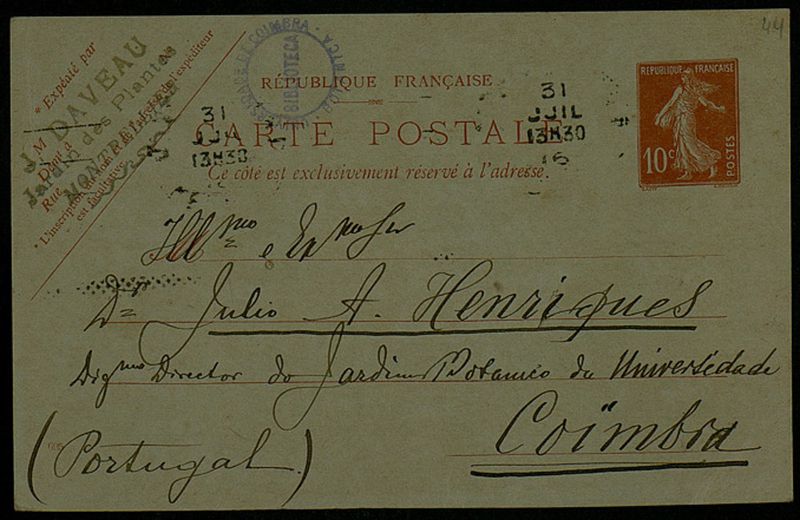 44
* Expédié par
J. DAVEAU
M
Dem.t à
Jardin des Plantes
Rue
MONTPELLIER
* L'inscription du nom et de l'adresse de l'expéditeur
est facultative.
UNIVERSIDADE DE COIMBRA · BOTANICA ·
BIBLIOTECA
RÉPUBLIQUE FRANÇAISE
31
JUIL
13H30
31
JUIL
13H30
16
CARTE POSTALE
Ce côté est exclusivement réservé à l'adresse.
RÉPUBLIQUE FRANÇAISE
10c
POSTES
Illmo e Exmo Snr
Dr Julio A. Henriques
Digmo Director do Jardim Botanico da Universidade
Coïmbra
(Portugal)